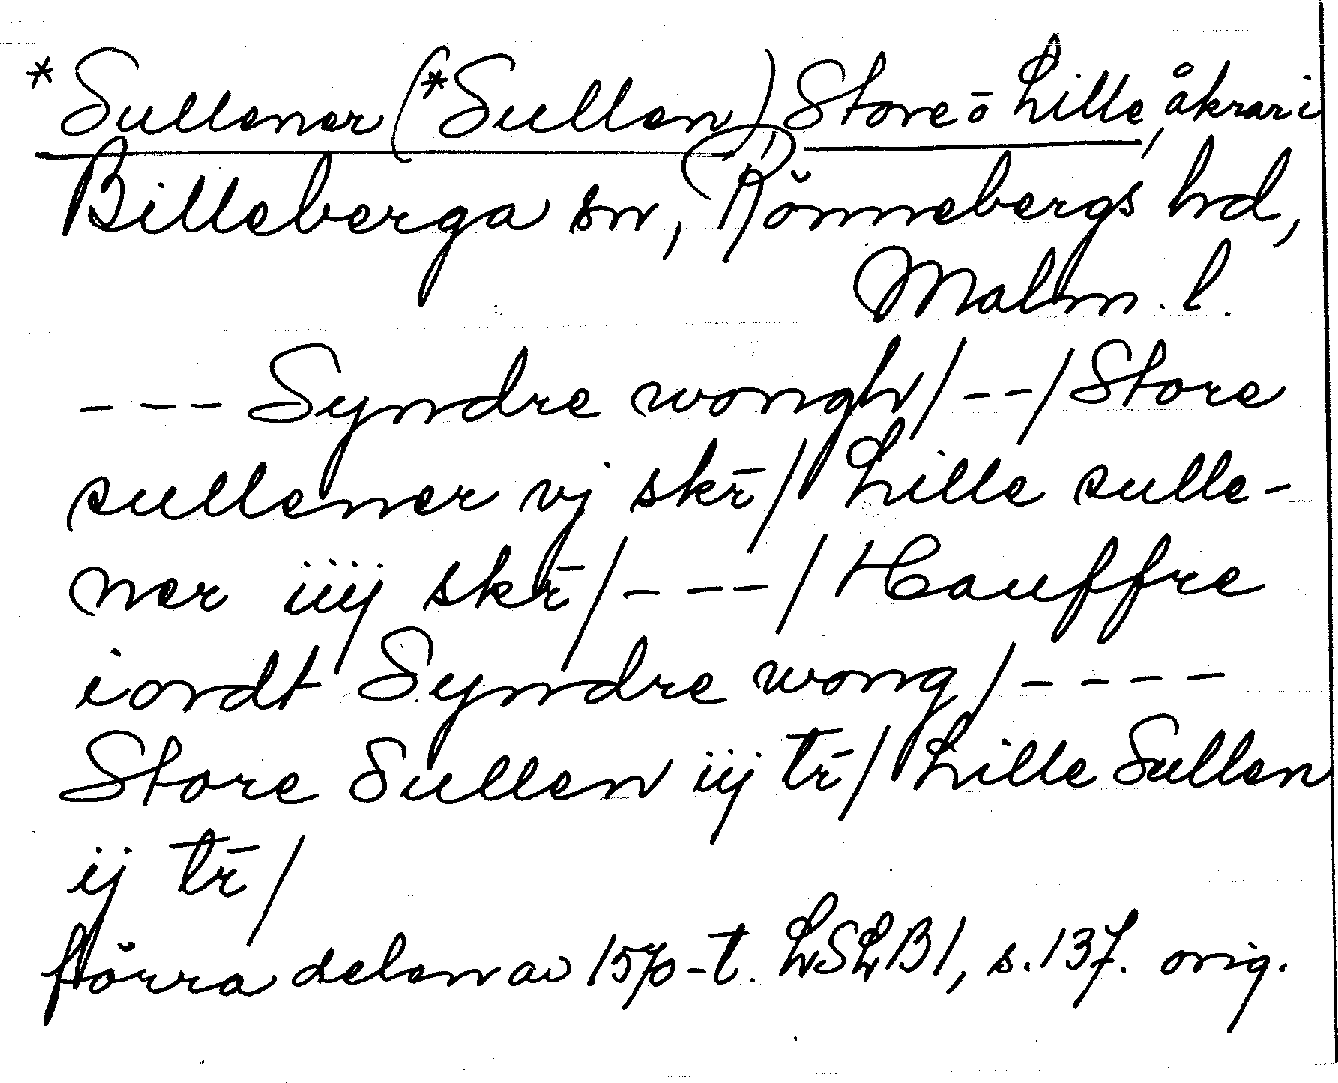 *Sullener (*Sullen) Store o Lille, åkrar i
Billeberga sn, Rönnebergs hd,
Malm. l.
--- Syndre wongh/--/Store
sullener vj skr̄/ Lille sulle-
ner iiij skr̄/---/Hauffre
iordt Syndre wong/----
Store Sullen iij tr̄/ Lille Sullen
ij tr̄/
förra delen av 1570-t. LSLB1, s. 137. orig.